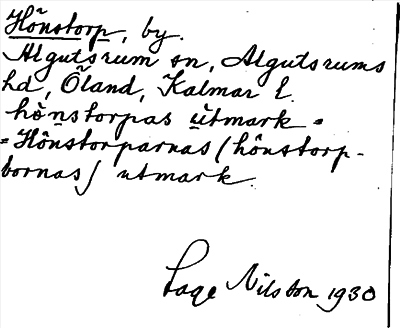 Hönstorp, by.
Algutsrum sn, Algutsrums
hd, Öland, Kalmar l.
hönstorpas utmark =
= Hönstorparnas (hönstorp-
bornas) utmark.
Lage Nilsson 1930